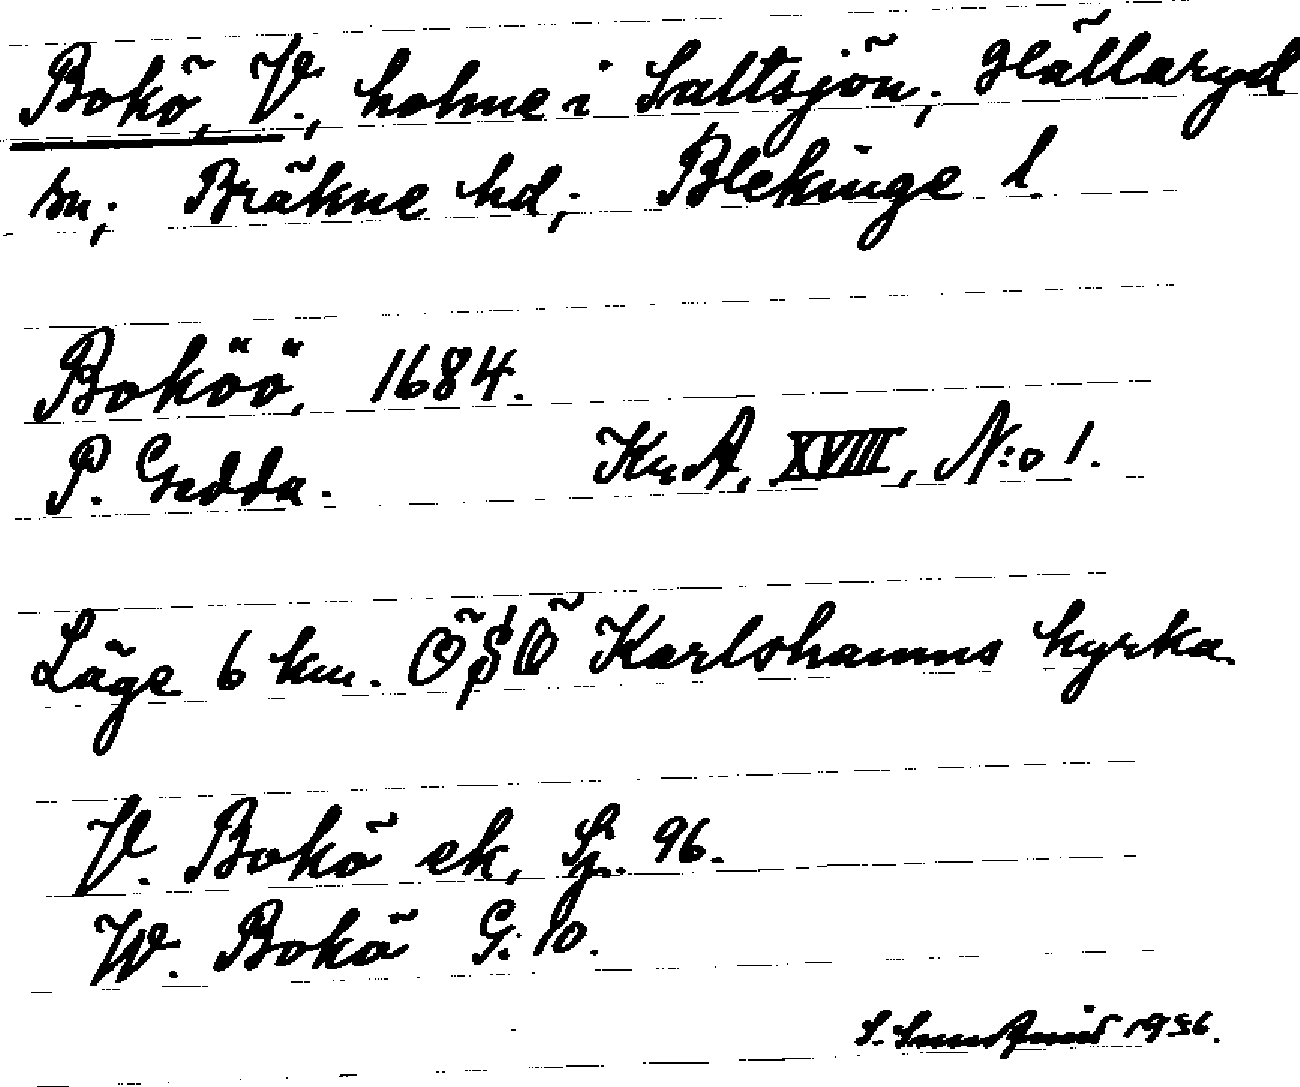 Bokö, V., holme i Saltsjön; Hällaryd
sn; Bräkne hd; Blekinge l.
Boköö, 1684.
P. Gedda. Kr.A, XVIII, N:o 1.
Läge 6 km. ÖSÖ Karlshamns kyrka.
V. Bokö ek, Sj. 96.
W. Bokö G: 10.
S. 1936.